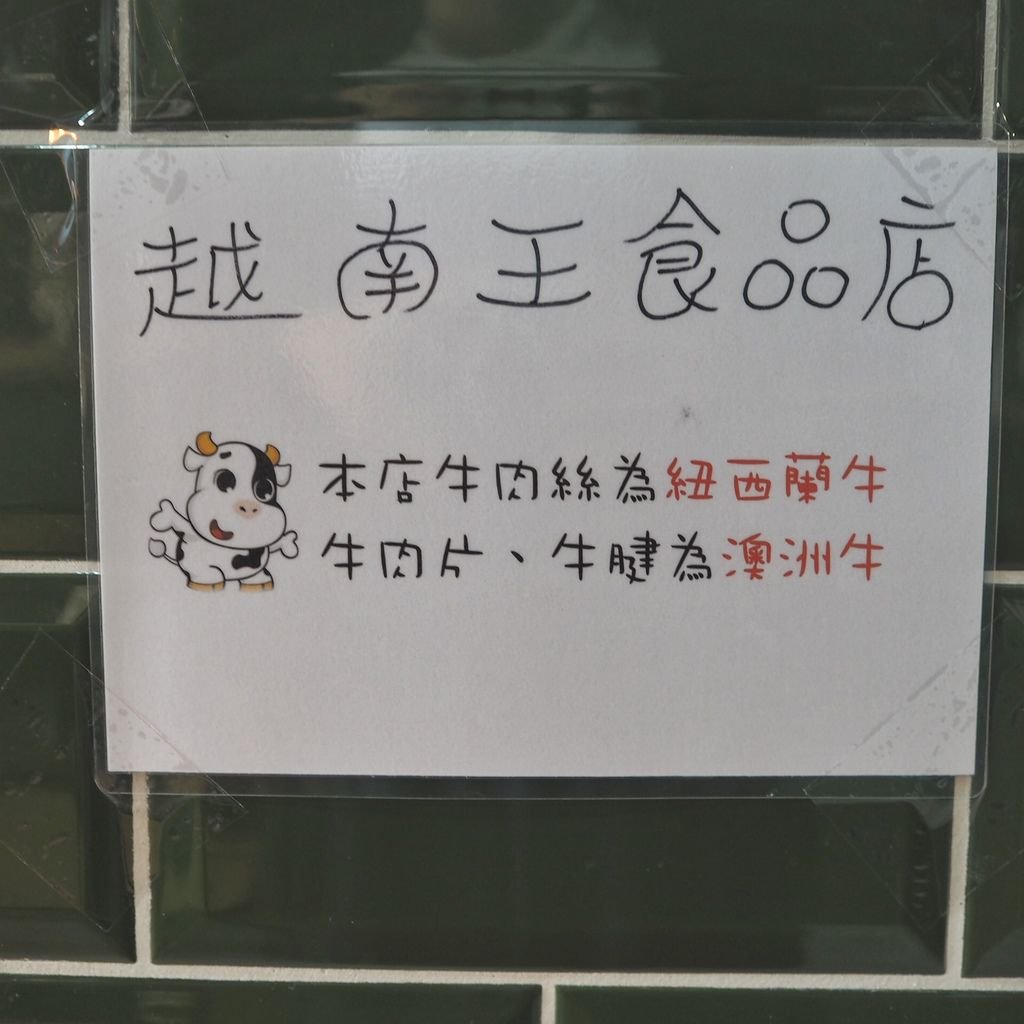 越南王食品店
本店牛肉絲為紐西蘭牛
牛肉片、牛腱為澳洲牛